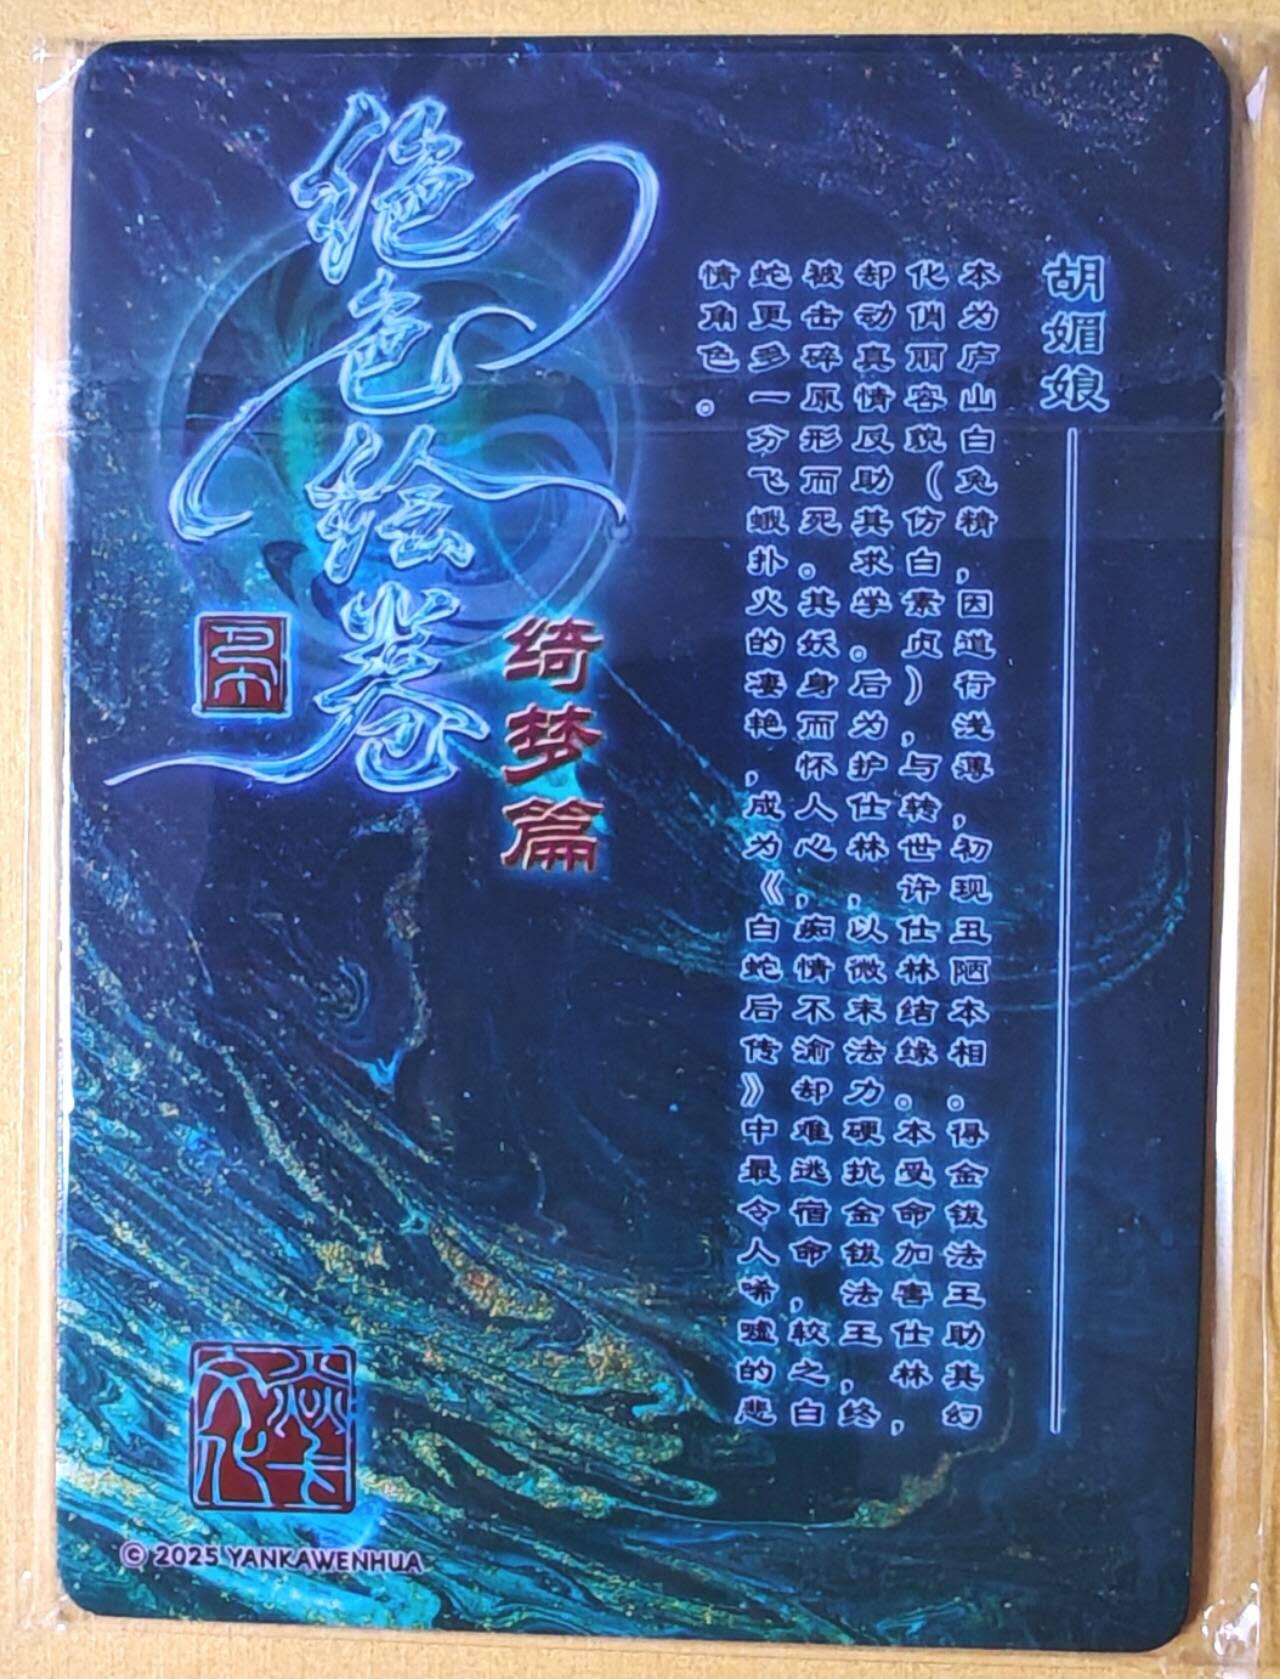 胡媚娘
本为庐山白兔精，因道行浅薄，初现丑陋本相。得金钹法王助其幻
化俏丽容貌（仿白素贞），与转世许仕林结缘。本受命加害仕林，
却动真情反助其求学。后为护仕林，以微末法力硬抗金钹法王，终
被击碎原形而死。其妖身而怀人心，痴情不渝却难逃宿命，较之白
蛇更多一分飞蛾扑火的凄艳，成为《白蛇后传》中最令人唏嘘的悲
情角色。
绝色绘卷
绮梦篇
焱卡文化
© 2025 YANKAWENHUA